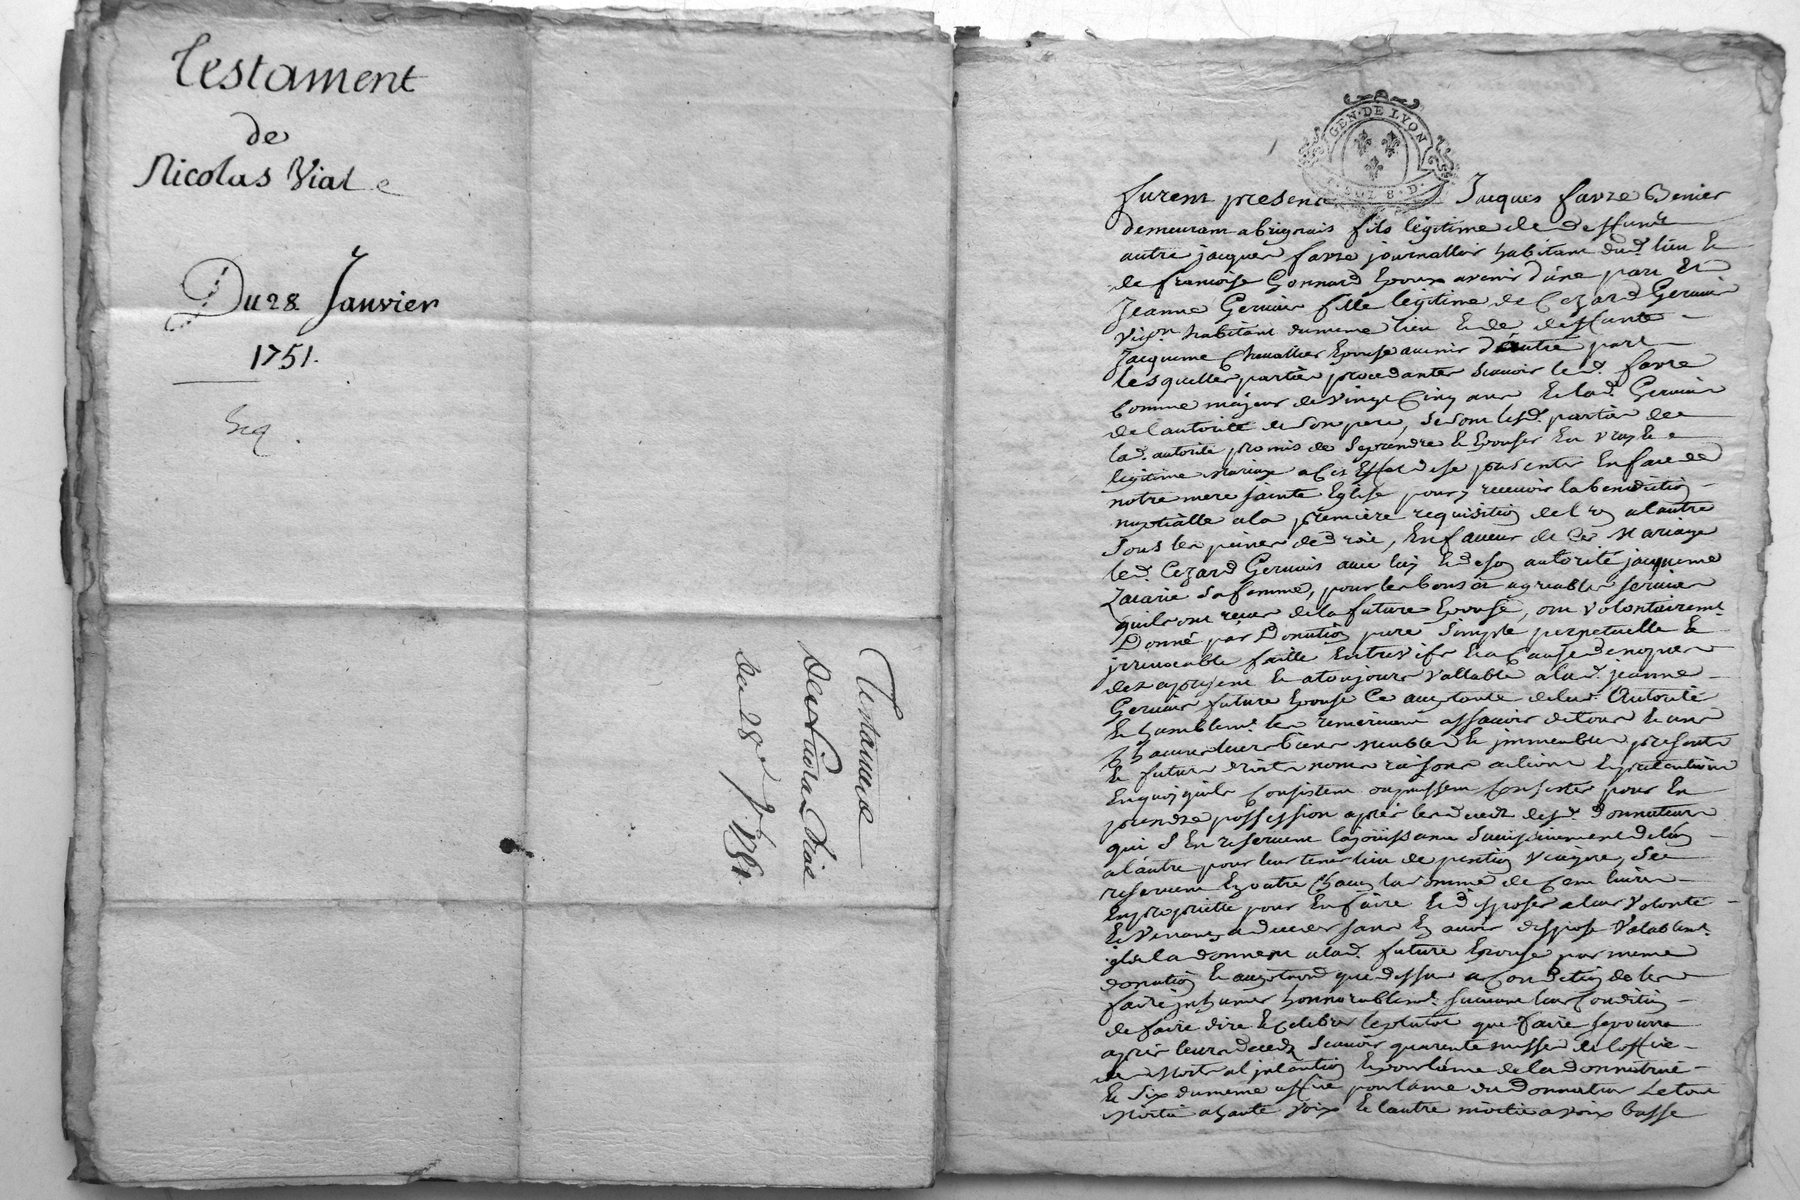 Testament
de
Nicolas Viale
Du 28 Janvier
1751.
Testament
de Nicolas Viale
du 28e Jr 1751.
GEN. DE LYON
furent presens Jacques favre Benier
demeurant a brignais fils légitime de deffunct
autre jacques favre journallier habitant dud. lieu &
de francoise Gonnard Epoux avenir d'une part Et
Jeanne Gervais fille légitime de Cezard Gervais
Vig.on habitant du meme lieu & de deffunte
Jacqueme Chevallier Epouse avenir d'autre part
lesquelles parties procedantes scavoir led. favre
Comme majeur de Vingt Cinq ans & lad. Gervais
de l'autorité de son pere, se sont lesd. parties de
lad. autorité promis de se prendre & Epouser En vray &
légitime Mariage a Cet Effet de se presenter En face de
notre mere sainte Eglise pour y recevoir la benediction
nuptialle a la premiere requisition de l'un a l'autre
sous les peines de droit, En faveur de Ce Mariage
led. Cezard Gervais avec luy & de son autorité jacqueme
Zacarie sa femme, pour les bons & agreables services
quils ont reçus de la future Epouse, ont volontairemt
Donné par Donation pure simple perpetuelle &
irrevocable faitte Entre vifs & a Cause de nopces
des a present & a toujours vallable a lad. jeanne
Gervais future Epouse Ce acceptante de lad. Autorité
& humblemt. les remerciant assavoir de tous & uns
Chacuns leurs biens meubles & immeubles presents
& futurs droits noms raisons actions & pretentions
En quoy quils Consistent ou puissent Consister pour En
prendre possession après les deceds desd. Donnateurs
qui S'En reservent la jouissance
a l'autre pour leur tenir lieu de pention viagere, se
reservent En outre Chacun la somme de Cent livres
En proprietté pour En faire & disposer a leur volonté
& Venants a deceder sans En avoir disposé Valablemt.
ils la donnent a lad. future Epouse par meme
donation & que dessus a Condition de les
faire inhumer honnorablemt. suivant leur Condition
de faire dire & Celebrer le plutot que faire se pourra
après leurs deceds scavoir quarente messes de l'office
des Morts a l'intention & pour l'ame de la donnatrice
& Six du meme office pour l'ame du Donnateur Le tout
Moitié a haute voix & l'autre moitié a voix basse